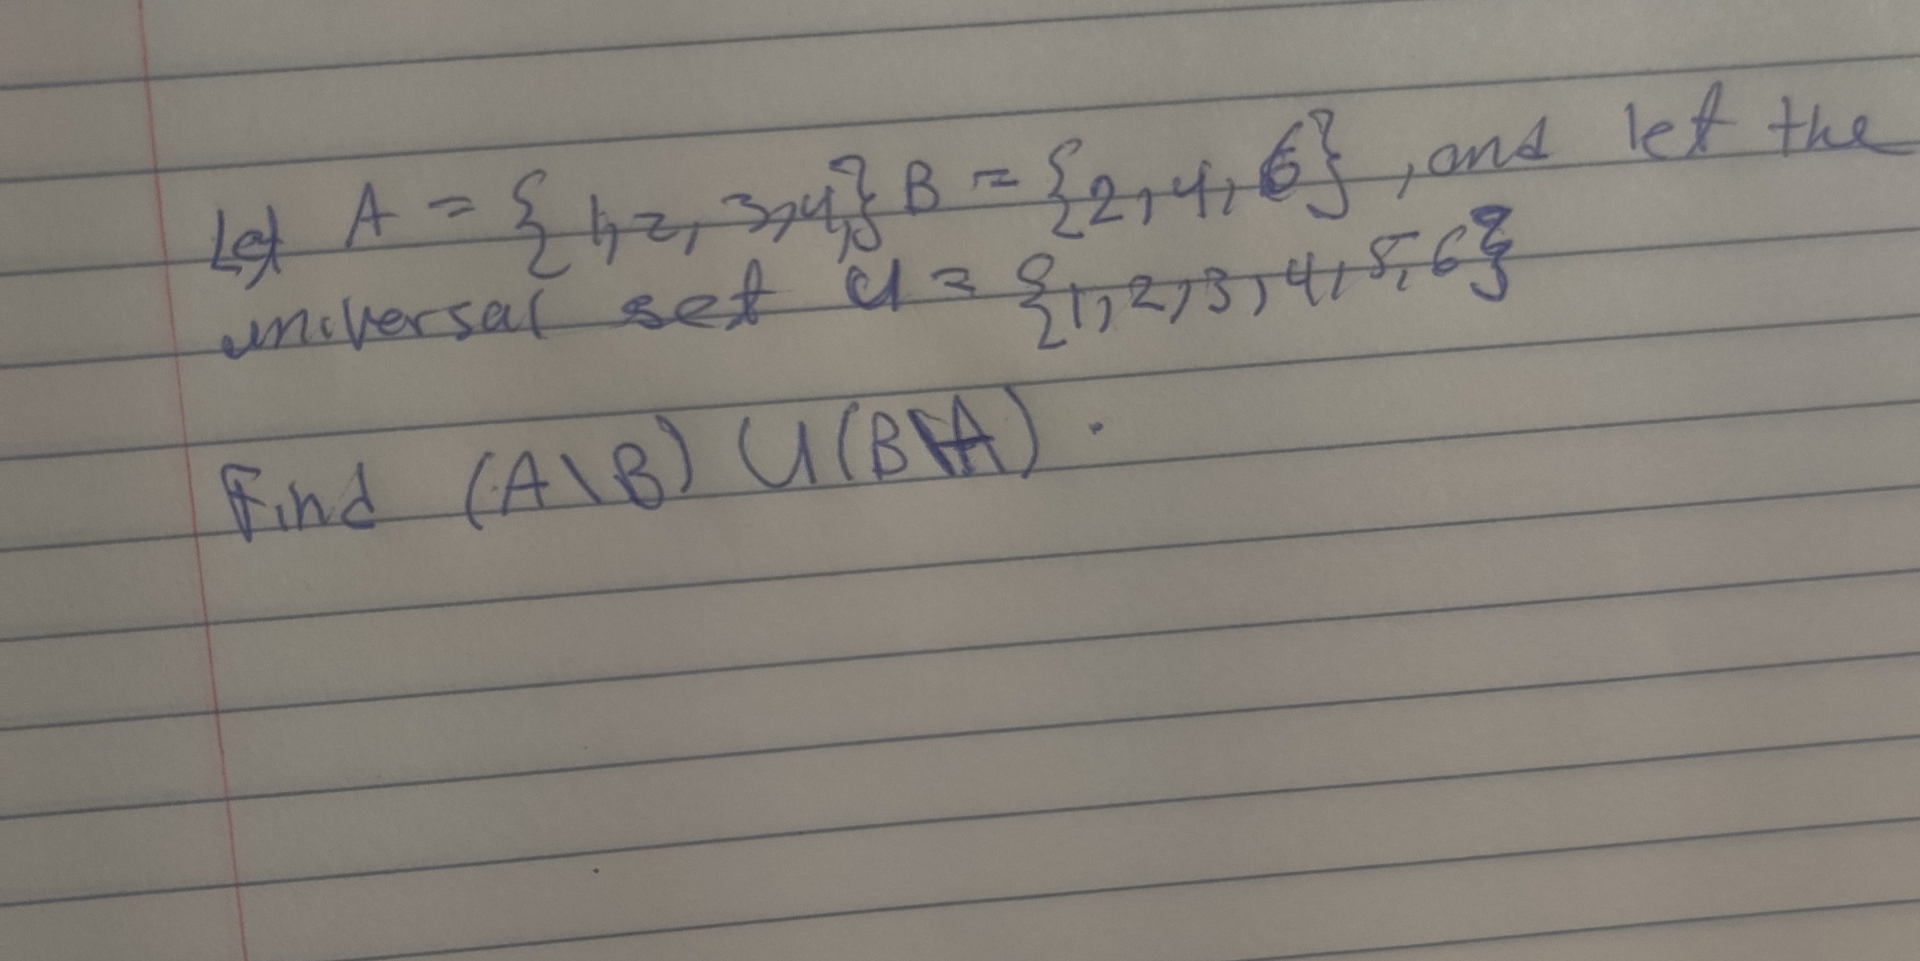 Let A = { 1, 2, 3, 4,} B = {2, 4, 6}, and let the
universal set U = {1, 2, 3, 4, 5, 6}
Find (A\B) U (B\A).